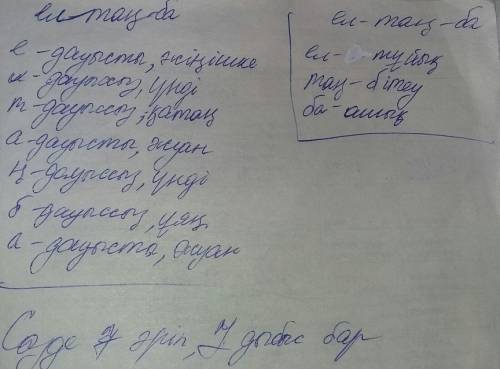 ел-таң-ба
е - дауысты, жіңішке
л - дауыссыз, үнді
т - дауыссыз, қатаң
а - дауысты, жуан
ң - дауыссыз, үнді
б - дауыссыз, ұяң
а - дауысты, жуан
Сөзде 7 әріп, 7 дыбыс бар
ел - таң - ба
ел - тұйық
таң - бітеу
ба - ашық